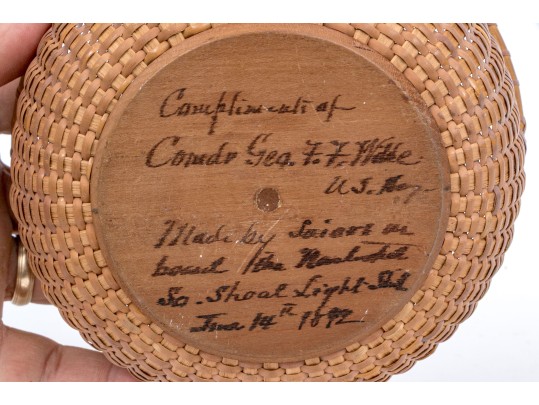 Compliments of
Comdr Geo. F. F. Wilde
U.S. Navy
Made by Sailors on
board the Nantucket
So. Shoal Light Ship
June 14th 1892